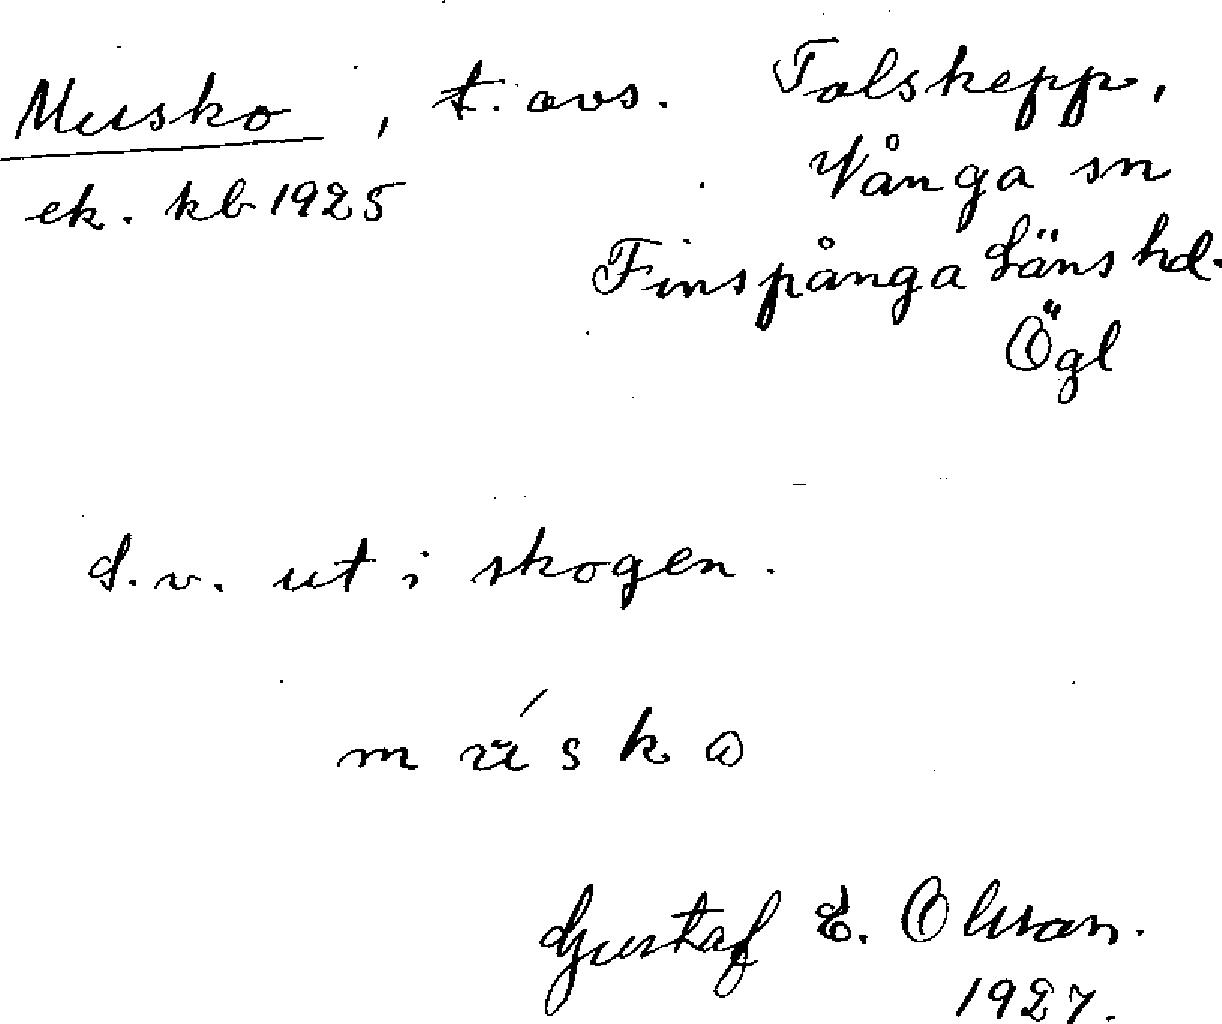 Musko, t. avs. Tolskepp,
ek. kb 1925 Vånga sn
Finspånga Läns hd.
Ögl
d.v. ut i skogen.
músko
Gustaf E. Olsson.
1927.